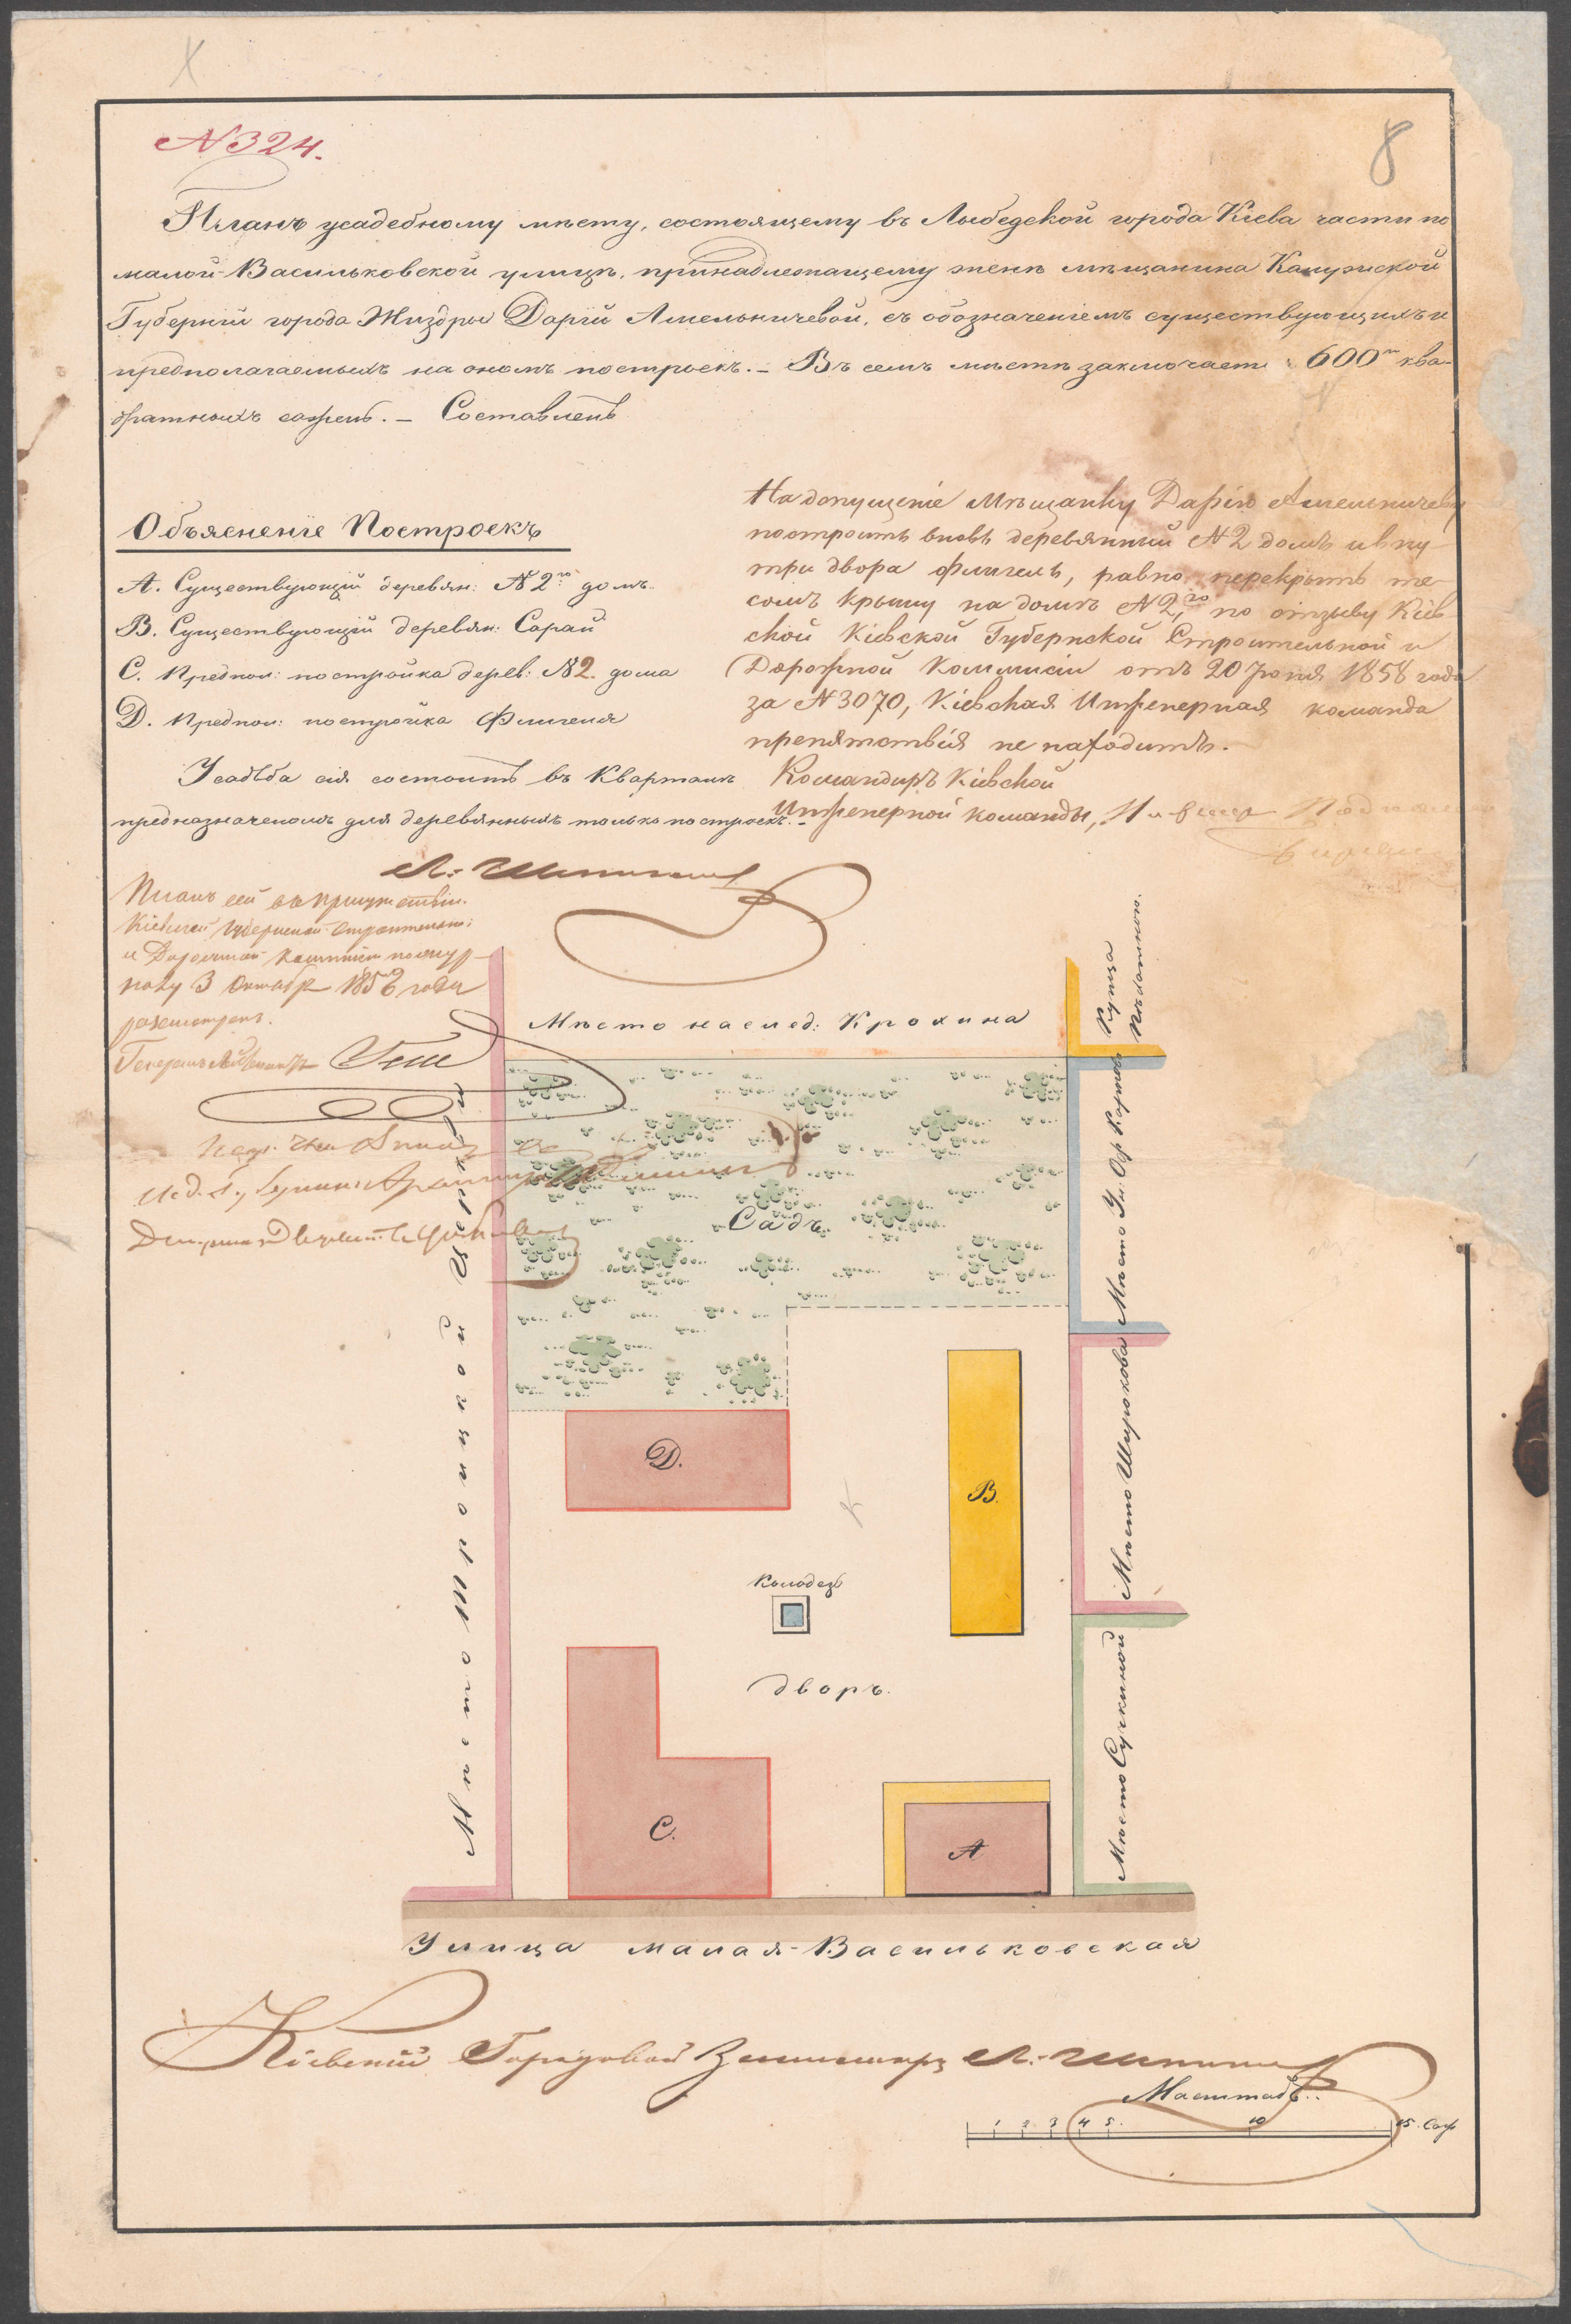 N 324.
8
Планъ усадебному мѣсту, состоящему въ Лыбедской города Кіева части по
малой-Васильковской улицѣ, принадлежащему женѣ мѣщанина Калужской
Губерніи города Жиздры Даріи Амельничевой, съ обозначеніемъ существующихъ и
предполагаемыхъ на ономъ построекъ. – Въ семъ мѣстѣ заключает 600 ква-
дратныхъ сажень. – Составленъ
Объясненіе Построекъ
А. Существующій деревян: N 2го домъ.
В. Существующій деревян: Сарай
С. Предпол: постройка дерев: N 2. дома
D. Предпол: постройка Флигеля
Усадьба сія состоитъ въ Кварталѣ
предназначеномъ для деревянныхъ только построекъ. –
На допущеніе Мѣщанку Дарію Амельничеву
построить вновь деревянный N 2 домъ и вну-
три двора флигель, равно перекрыть те-
сомъ крышу на домѣ N 2го, по отзыву Кіев-
ской Кіевской Губернской Строительной и
Дорожной Коммисіи отъ 20 Іюня 1858 года
за N 3070, Кіевская Инженерная команда
препятствія не находитъ.
Командиръ Кіевской
Инженерной команды,
Планъ сей въ присутствіи
Кіевской Губернской Строительной
и Дорожной Коммисіи по журналу
3 Октября 185 года
разсмотренъ.
Генералъ
Мѣсто наслед: Крохина
Купца
Мѣсто Ун. Оф.
Мѣсто Широкова
Мѣсто Сучкиной
Мѣсто Троицкой Церкви
Садъ.
D.
B.
Колодезь
Дворъ.
C.
A
Улица малая-Васильковская
Кіевскій Городовой Землемеръ
Масштабъ.
1 2 3 4 5. 10 15. Саж